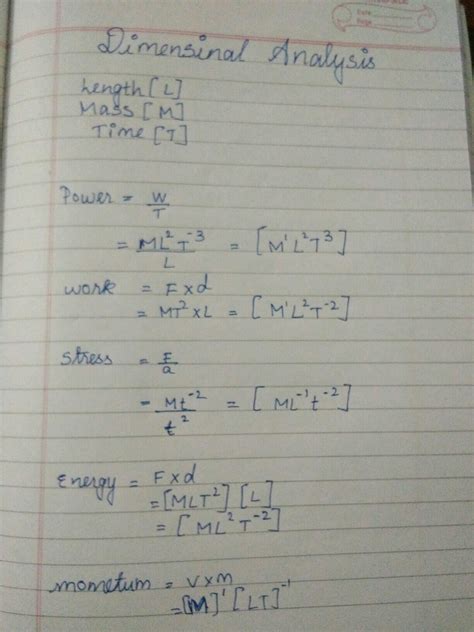 Date
Page
Dimensinal Analysis
Length [L]
Mass [M]
Time [T]
Power = W/T
= ML²T⁻³/L = [M¹L²T³]
work = F×d
= MT²×L = [M¹L²T⁻²]
Stress = F/a
- Mt⁻²/t² = [ML⁻¹t⁻²]
Energy = F×d
= [MLT²] [L]
= [ML²T⁻²]
mometum = v×m
= [M]¹ [LT]⁻¹